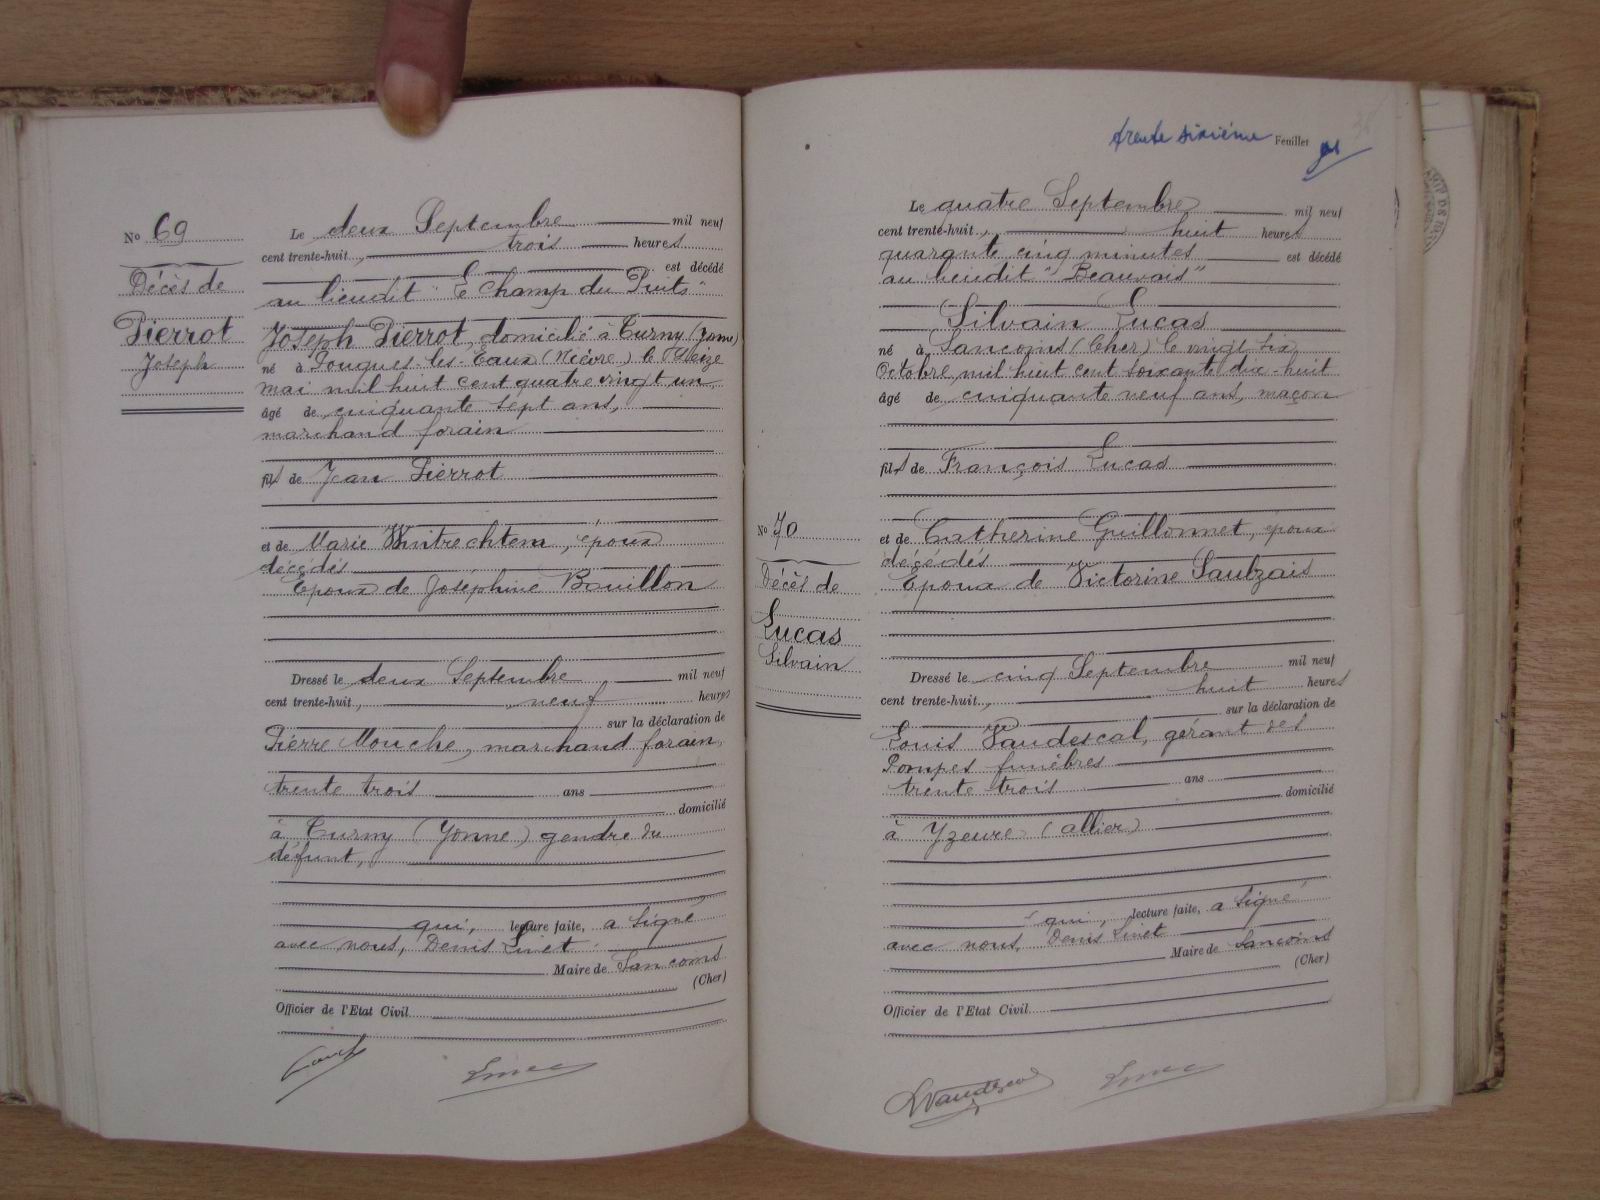 No 69
Décès de
Pierrot
Joseph
Le deux Septembre mil neuf
cent trente-huit, trois heures
est décédé
au lieudit "Le Champ du Puits"
Joseph Pierrot, domicilié à Turny (Yonne)
né à Pougues-les-Eaux (Nièvre) le treize
mai mil huit cent quatre vingt un
âgé de cinquante sept ans,
marchand forain
fils de Jean Pierrot
et de Marie Wintrechtem, époux
décédés
Epoux de Joséphine Bouillon
Dressé le deux Septembre mil neuf
cent trente-huit, neuf heures
sur la déclaration de
Pierre Mouche, marchand forain,
trente trois ans
domicilié
à Turny (Yonne) gendre du
défunt,
qui, lecture faite, a signé
avec nous, Denis Linet
Maire de Sancoins
(Cher)
Officier de l'Etat Civil
trente sixième Feuillet
36
Le quatre Septembre mil neuf
cent trente-huit, huit heures
quarante cinq minutes est décédé
au lieudit "Beauvais"
Silvain Lucas
né à Sancoins (Cher) le vingt six
Octobre mil huit cent soixante dix huit
âgé de cinquante neuf ans, maçon
fils de François Lucas
No 70
Décès de
Lucas
Silvain
et de Catherine Guillonnet, époux
décédés
Epoux de Victorine Saulzais
Dressé le cinq Septembre mil neuf
cent trente-huit, huit heures
sur la déclaration de
Louis Vaudescal, gérant des
Pompes funèbres
trente trois ans
domicilié
à Yzeure (Allier)
qui, lecture faite, a signé
avec nous, Denis Linet
Maire de Sancoins
(Cher)
Officier de l'Etat Civil